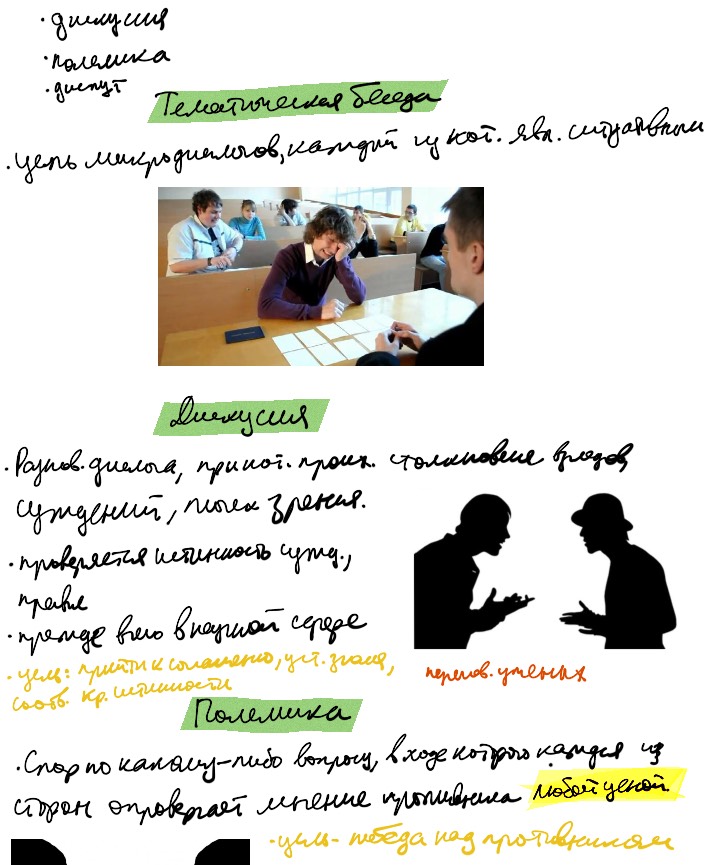 · дискусия
· полемика
· диспут
Тематическая беседа
· цепь микродиалогов, каждый из кот. явл. ситуативным
Дискусия
· Разнов. диалога, при кот. проих. столкновение взглядов,
суждений, точек зрения.
· проверяется истинность сужд.,
правил
· прежде всего в научной сфере
· цель: прийти к соглашению, уст. знаия,
соотв. кр. истинности
перегов. ученых
Полемика
· Спор по какому-либо вопросу, в ходе которого каждая из
сторон опровергает мнение противника любой ценой
· цель - победа над противником